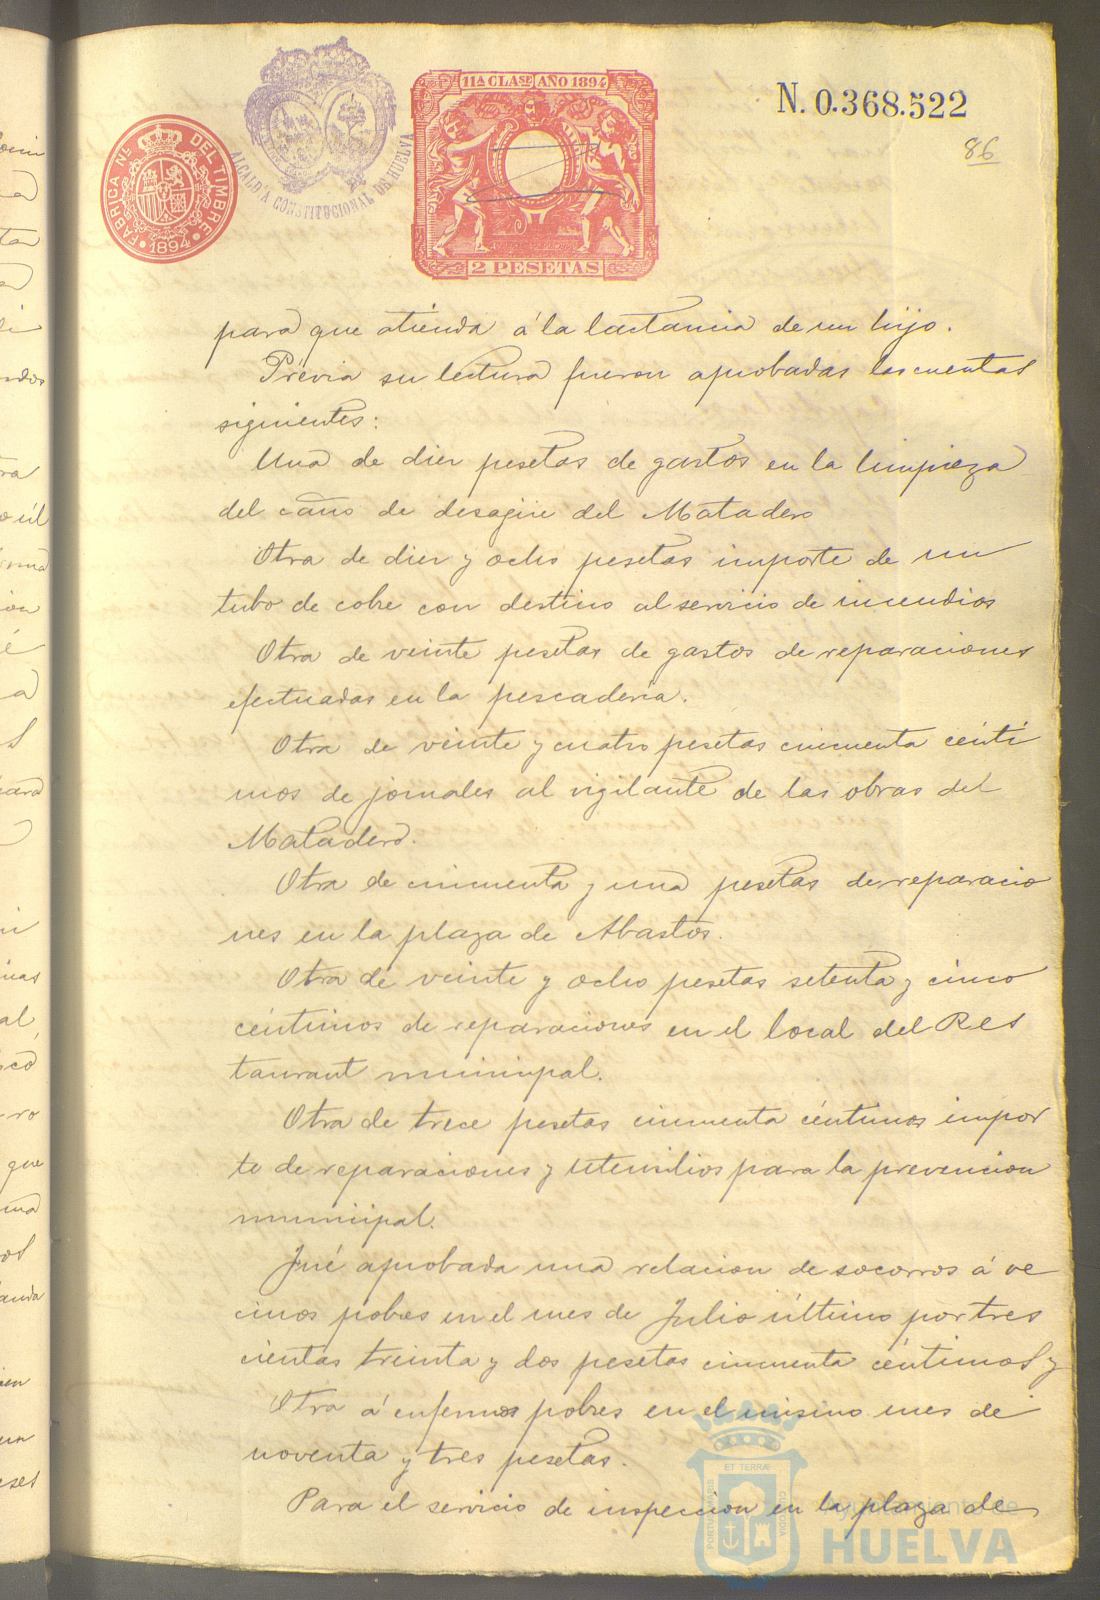 11ᴬ CLASE AÑO 1894
N. 0.368.522
FABRICA NL. DEL TIMBRE
1894
ALCALDÍA CONSTITUCIONAL DE HUELVA
2 PESETAS
86
para que atienda á la lactancia de un hijo.
Prévia su lectura fueron aprobadas las cuentas
siguientes:
Una de diez pesetas de gastos en la limpieza
del caño de desagüe del Matadero
Otra de diez y ocho pesetas importe de un
tubo de cobre con destino al servicio de incendios
Otra de veinte pesetas de gastos de reparaciones
efectuadas en la pescaderia.
Otra de veinte y cuatro pesetas cincuenta cénti
mos de jornales al vigilante de las obras del
Matadero.
Otra de cincuenta y una pesetas de reparacio
nes en la plaza de Abastos.
Otra de veinte y ocho pesetas setenta y cinco
céntimos de reparaciones en el local del Res
taurant municipal.
Otra de trece pesetas cincuenta céntimos impor
te de reparaciones y utensilios para la prevencion
municipal.
Fué aprobada una relacion de socorros á ve
cinos pobres en el mes de Julio último por tres
cientas treinta y dos pesetas cincuenta céntimos y
Otra á enfermos pobres en el mismo mes de
noventa y tres pesetas.
Para el servicio de inspeccion en la plaza de
ET TERRÆ
PORTUS MARIS
CUSTODIA
Ayuntamiento de
HUELVA